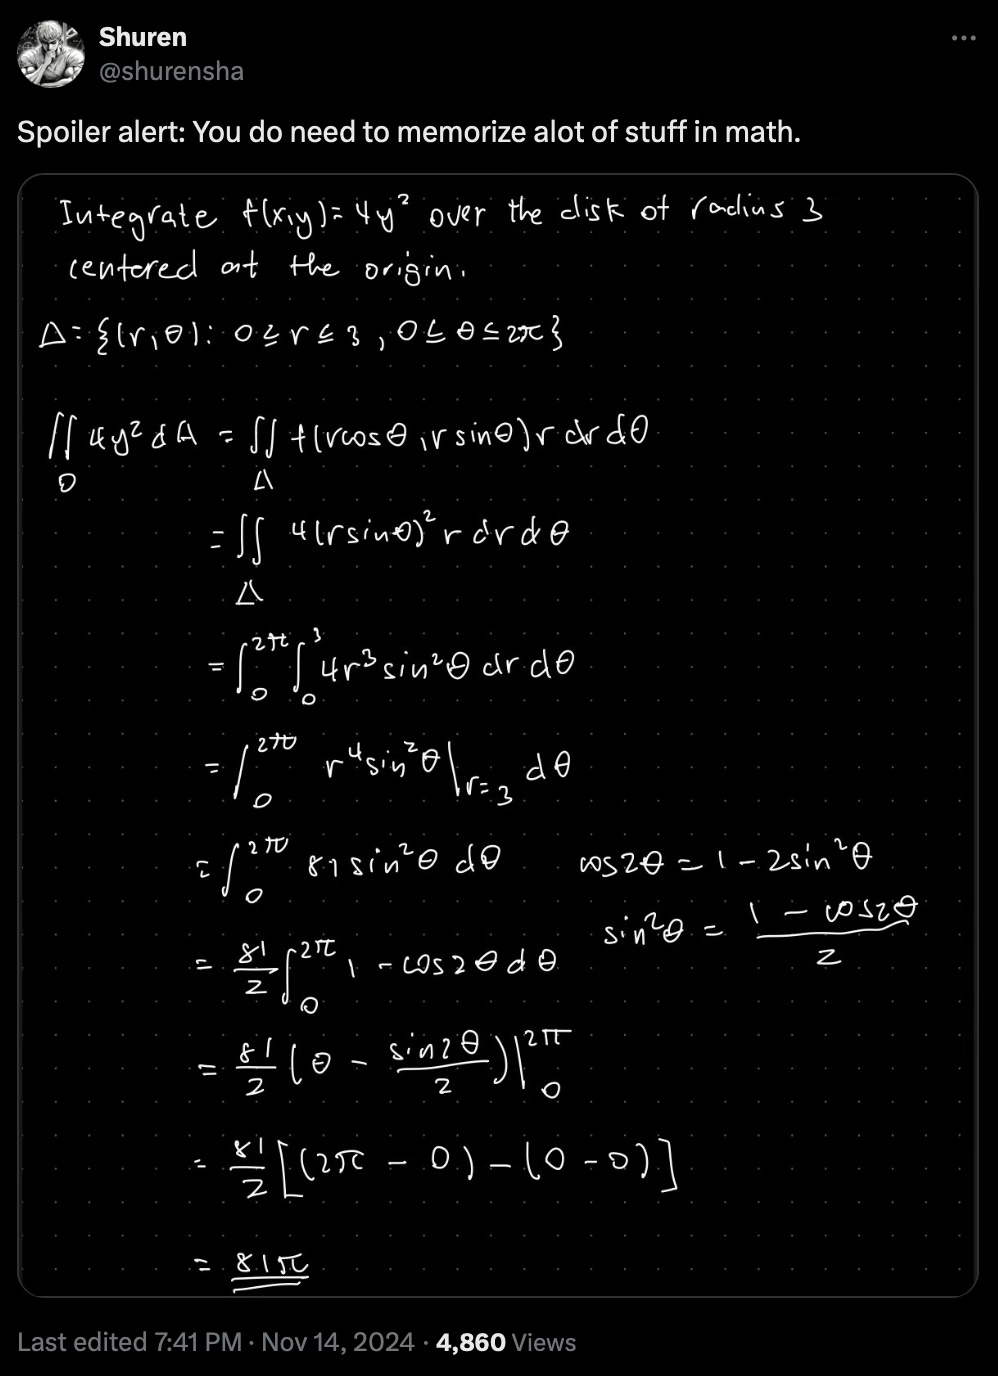 Shuren
@shurensha
Spoiler alert: You do need to memorize alot of stuff in math.
Integrate f(x,y)=4y² over the disk of radius 3
centered at the origin.
Δ={(r,θ): 0≥r≤3, 0≤θ≤2π}
∬_D 4y² dA = ∬_Δ f(rcosθ, r sinθ) r dr dθ
= ∬_Δ 4(rsinθ)² r dr dθ
= ∫₀^2π ∫₀³ 4r³ sin²θ dr dθ
= ∫₀^2π r⁴sin²θ|_r=3 dθ
= ∫₀^2π 81 sin²θ dθ
cos2θ = 1 - 2sin²θ
sin²θ = (1 - cos2θ)/2
= 81/2 ∫₀^2π 1 - cos2θ dθ
= 81/2 (θ - sin2θ/2)|₀^2π
= 81/2 [(2π - 0) - (0 - 0)]
= 81π
Last edited 7:41 PM · Nov 14, 2024 · 4,860 Views